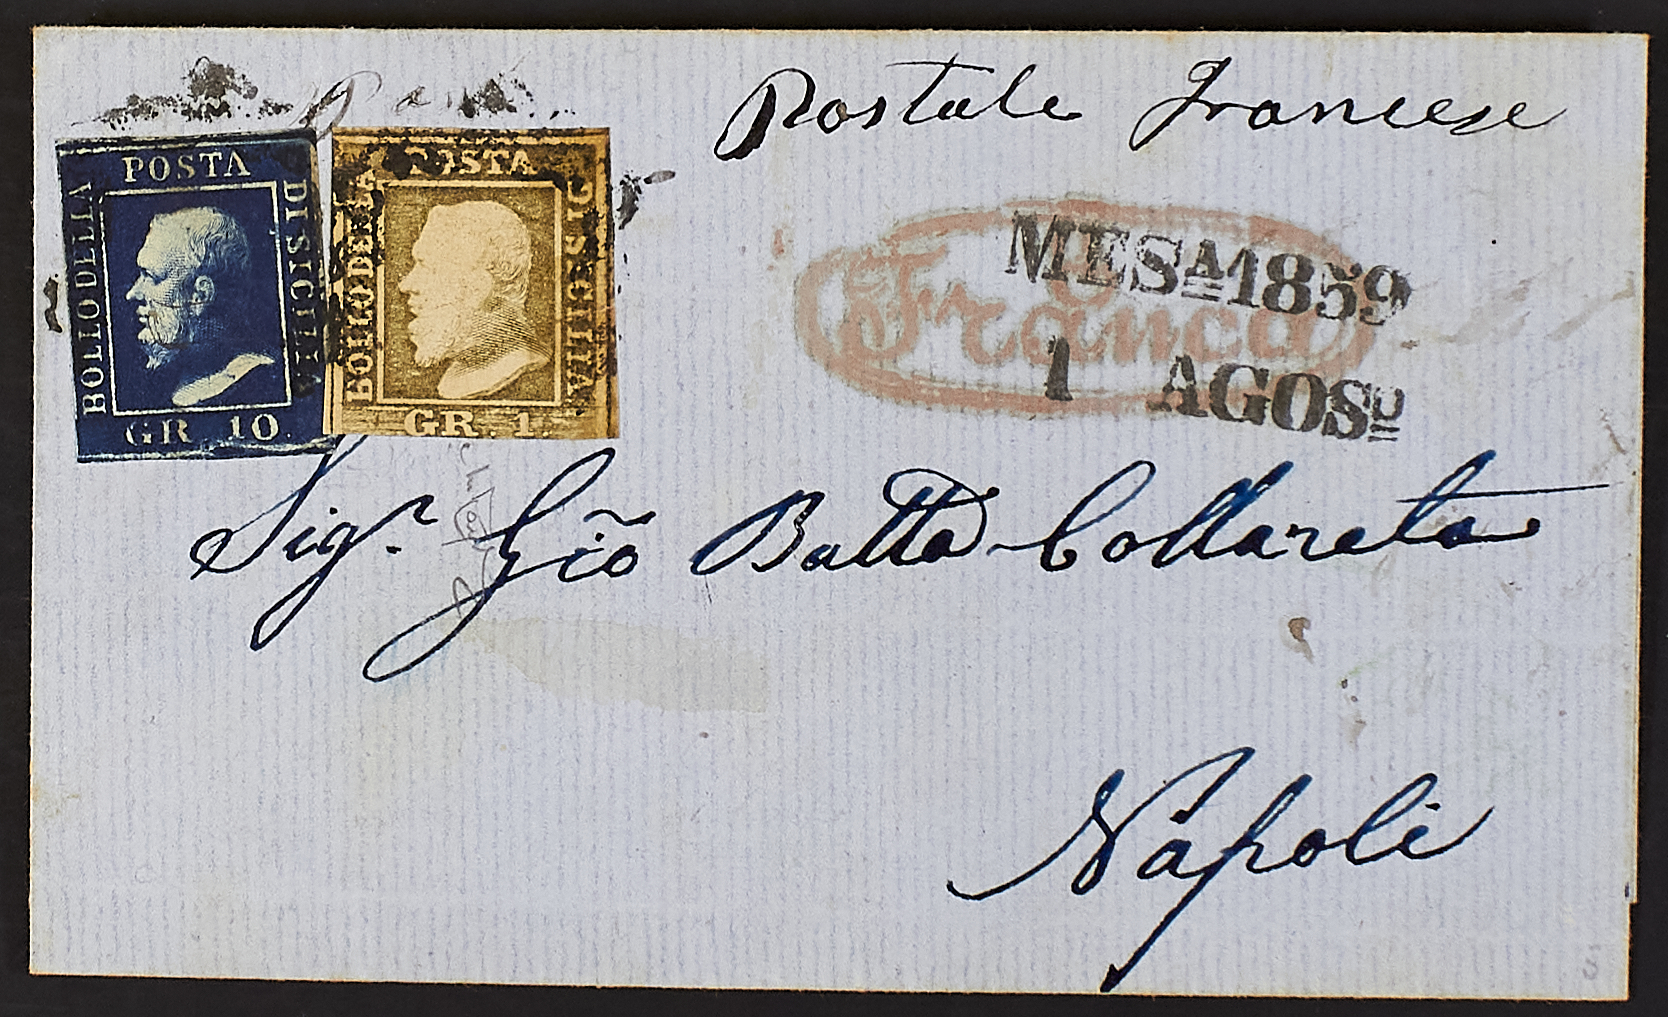 Postale Francese
POSTA
BOLLO DELLA
DI SICILIA
GR 10.
POSTA
BOLLO DELLA
DI SICILIA
GR. 1.
Franca
MESA 1859
1 AGOSO
Sigr. Gio Batta Collareta
Napoli